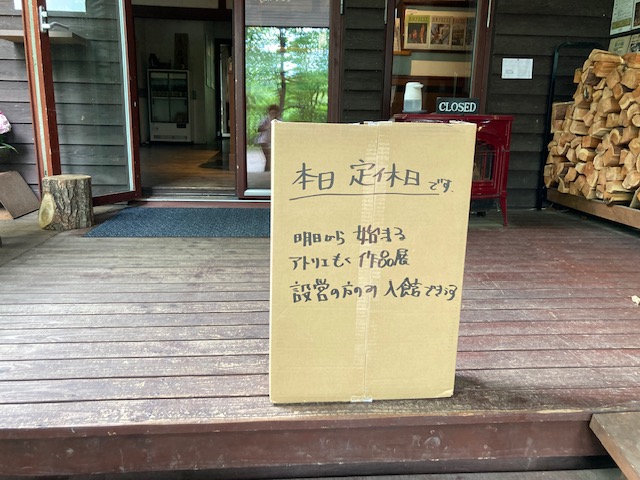 CLOSED
本日 定休日です.
明日から 始まる
アトリエもく 作品展
設営の方のみ 入館できます